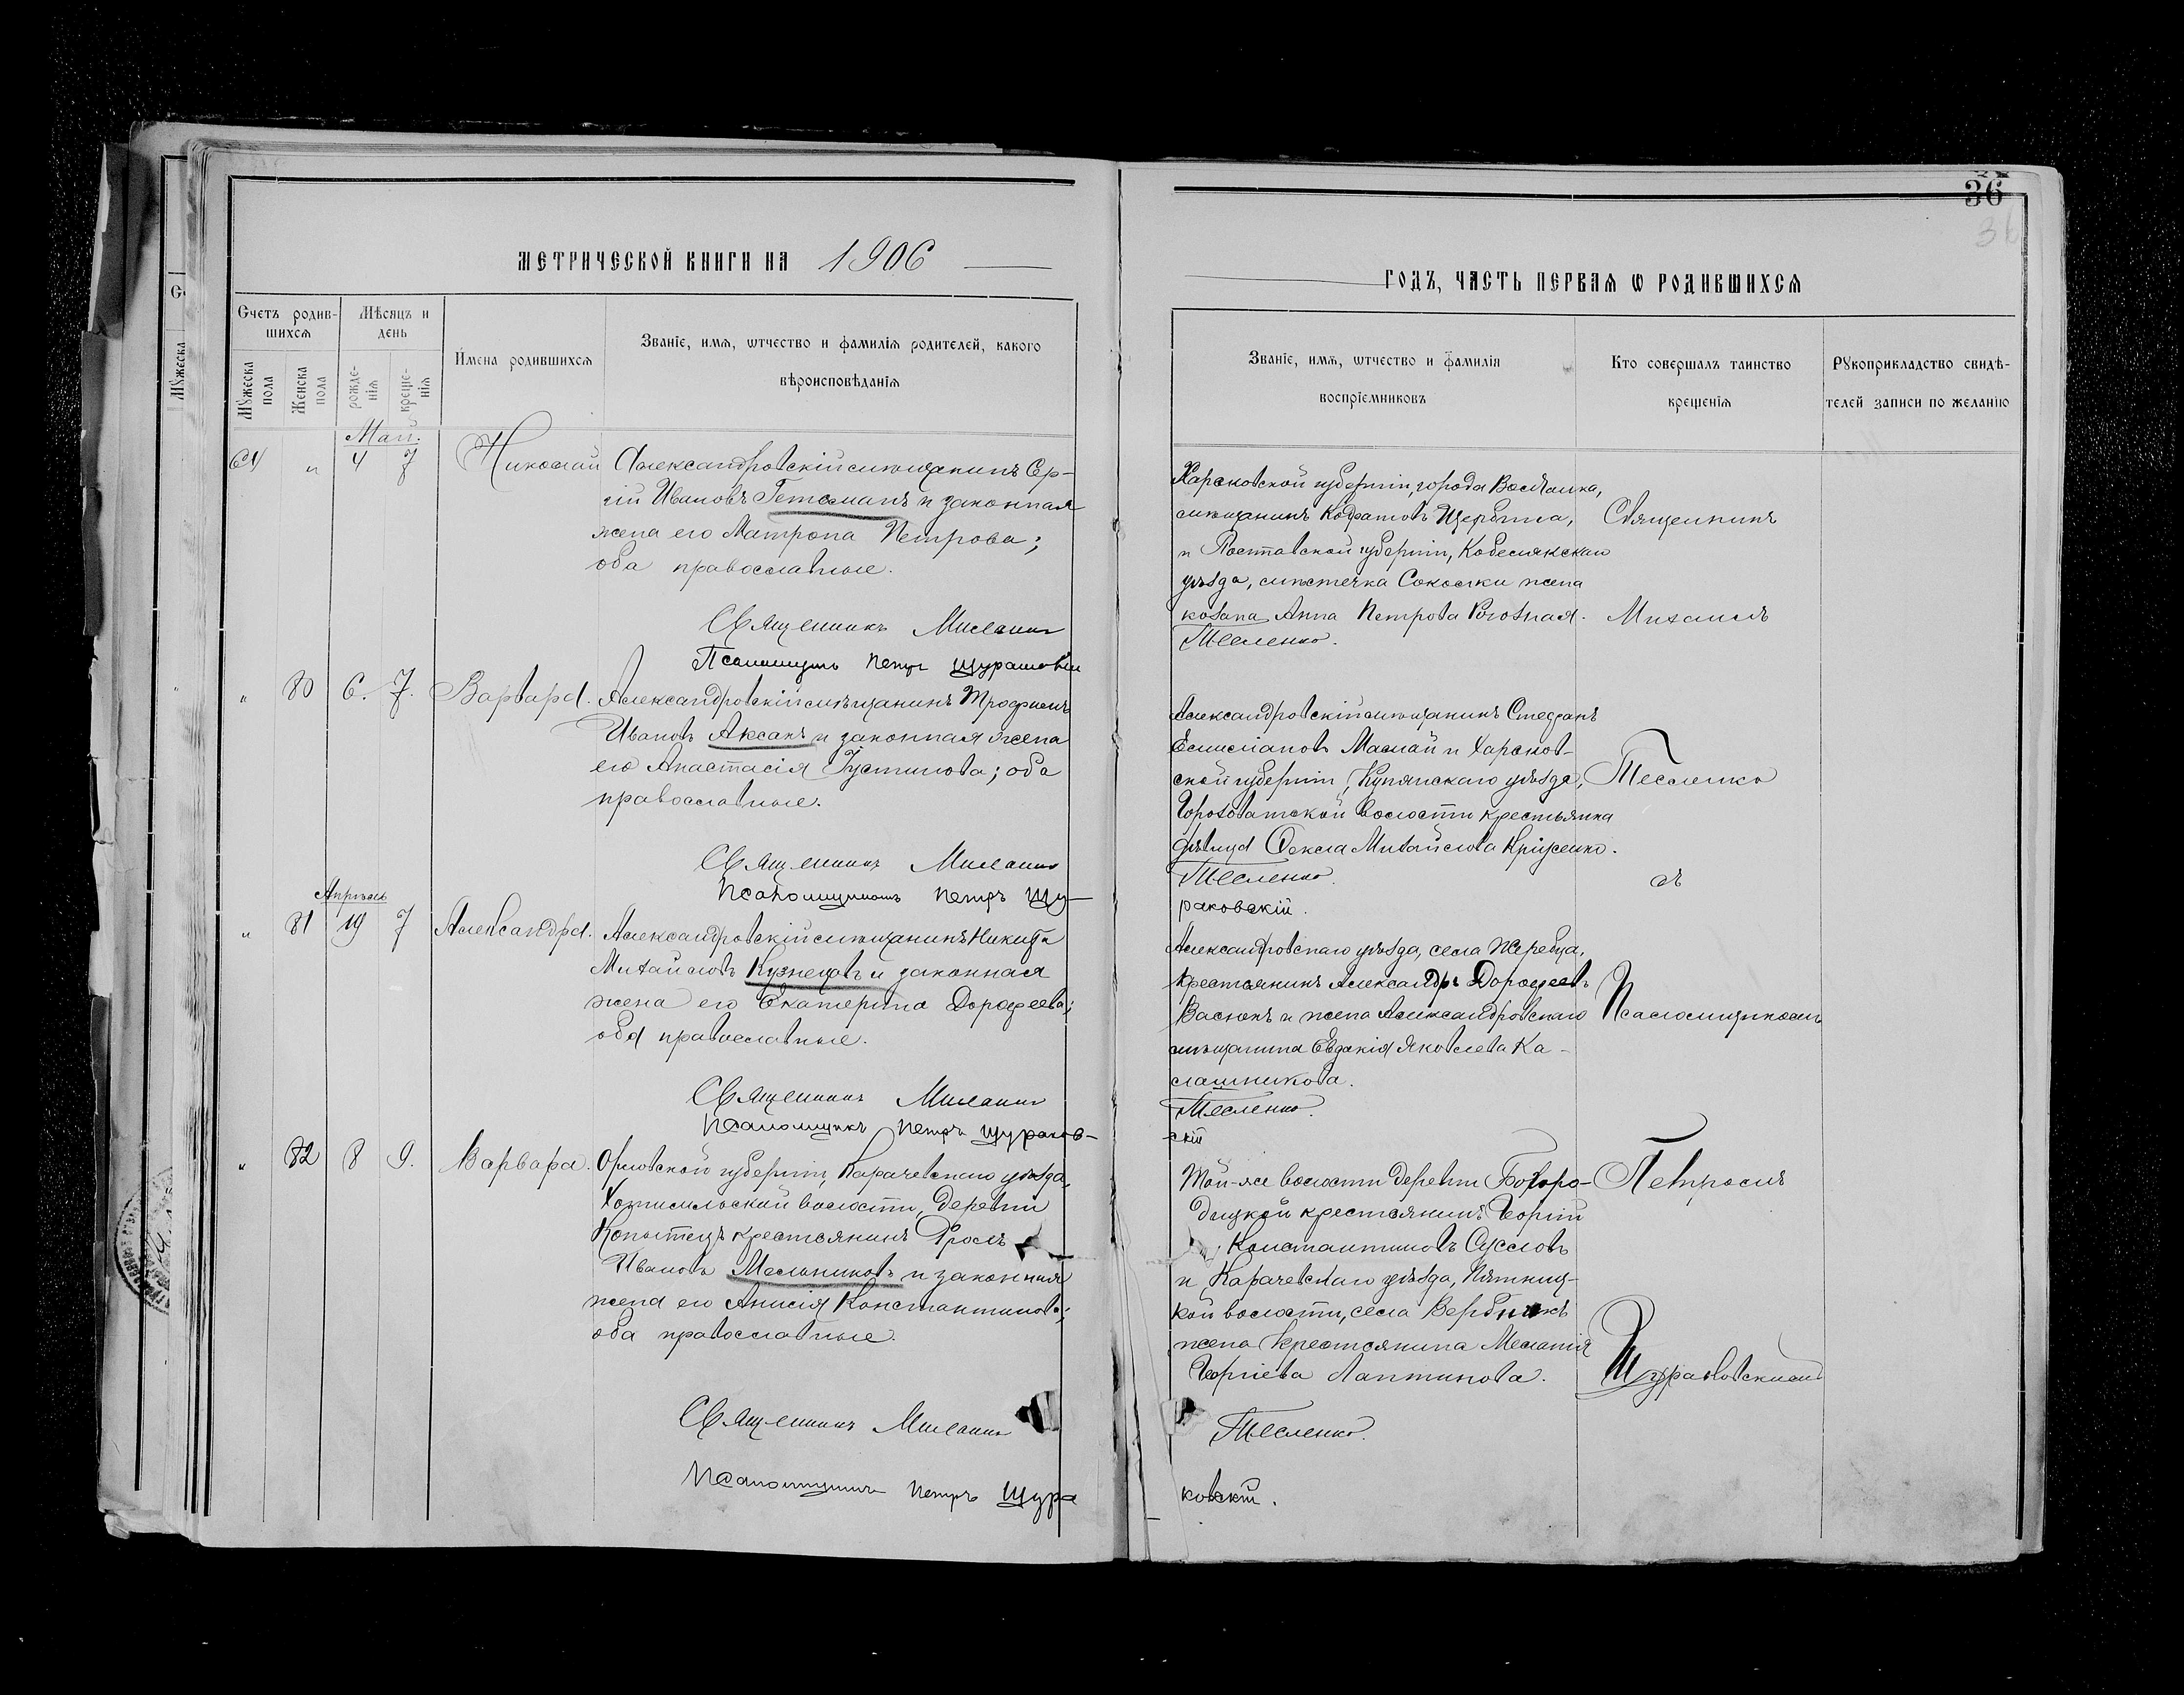 36
МЕТРИЧЕСКОЙ КНИГИ НА 1906
ГОДЪ, ЧАСТЬ ПЕРВАЯ Ѡ РОДИВШИХСЯ
Счетъ родив-
шихся
Мужеска
пола
Женска
пола
Мѣсяцъ и
день
рожде-
нія
креще-
нія
Имена родившихся
Званіе, имя, ѡтчество и фамилія родителей, какого
вѣроисповѣданія
Званіе, имя, ѡтчество и фамилія
воспріемниковъ
Кто совершалъ таинство
крещенія
Рукоприкладство свидѣ-
телей записи по желанію
Май.
64 " 4 7 Николай Александровскій мѣщанинъ Сер-
гій Ивановъ Гетманъ и законная
жена его Матрона Петрова;
оба православные.
Священникъ Михаилъ
Псаломщикъ Петръ
" 80 6. 7. Варвара. Александровскій мѣщанинъ Трофимъ
Ивановъ Аксакъ и законная жена
его Анастасія Густинова; оба
православные.
Священникъ Михаилъ
Псаломщикъ Петръ Щу-
Апрѣль
" 81 19 7 Александра. Александровскій мѣщанинъ Никита
Михайловъ Кузнецовъ и законная
жена его Екатерина Дорофеева;
оба православные.
Священникъ Михаилъ
Псаломщикъ Петръ Щураков-
" 82 8 9. Варвара. Орловской губерніи, Карачевскаго уѣзда,
волости, деревни
крестьянинъ Фролъ
Ивановъ Мельниковъ и законная
жена его Анисія Константинова;
оба православные.
Священникъ Михаилъ
Псаломщикъ Петръ Щура
Харьковской губерніи, города
мѣщанинъ Щербина,
и Полтавской губерніи, Кобелякскаго
уѣзда, мѣстечка Соколки жена
козака Анна Петрова
Тесленко.
Александровскій мѣщанинъ Стефанъ
Емиліановъ Малай и Харьков-
ской губерніи, Купянскаго уѣзда,
волости крестьянка
дѣвица Ѳекла Михайлова
Тесленко.
раковскій.
Александровскаго уѣзда, села Жеребца,
крестьянинъ Александръ Дорофеевъ
Васюкъ и жена Александровскаго
мѣщанина Евдокія Яковлева Ка-
лашникова.
Тесленко.
скій
Той-же волости деревни Богоро-
дицкой крестьянинъ Георгій
Константиновъ Сусловъ
и Карачевскаго уѣзда, Пятниц-
кой волости, села
жена крестьянина Меланія
Георгіева Лаптинова.
Тесленко.
ковскій.
Священникъ
Михаилъ
Тесленко
съ
Псаломщикомъ
Петромъ
Щураковскимъ